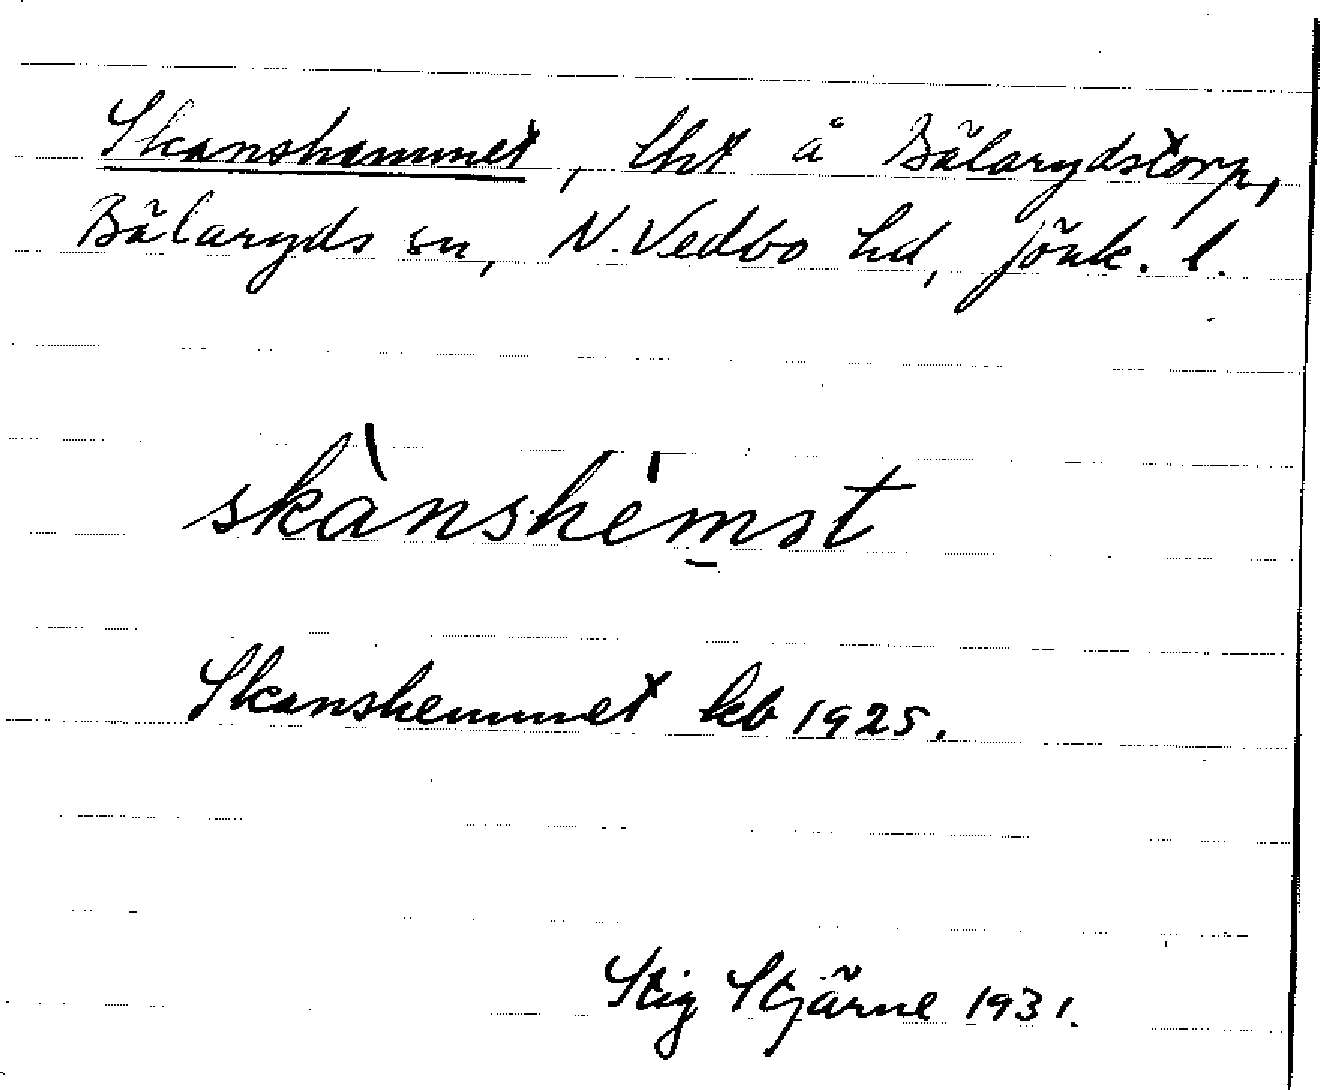 Skanshemmet, lht å Bälarydstorp,
Bälaryds sn, N. Vedbo hd, Jönk. l.
skànshémət
Skanshemmet kb 1925.
Stig Stjärne 1931.